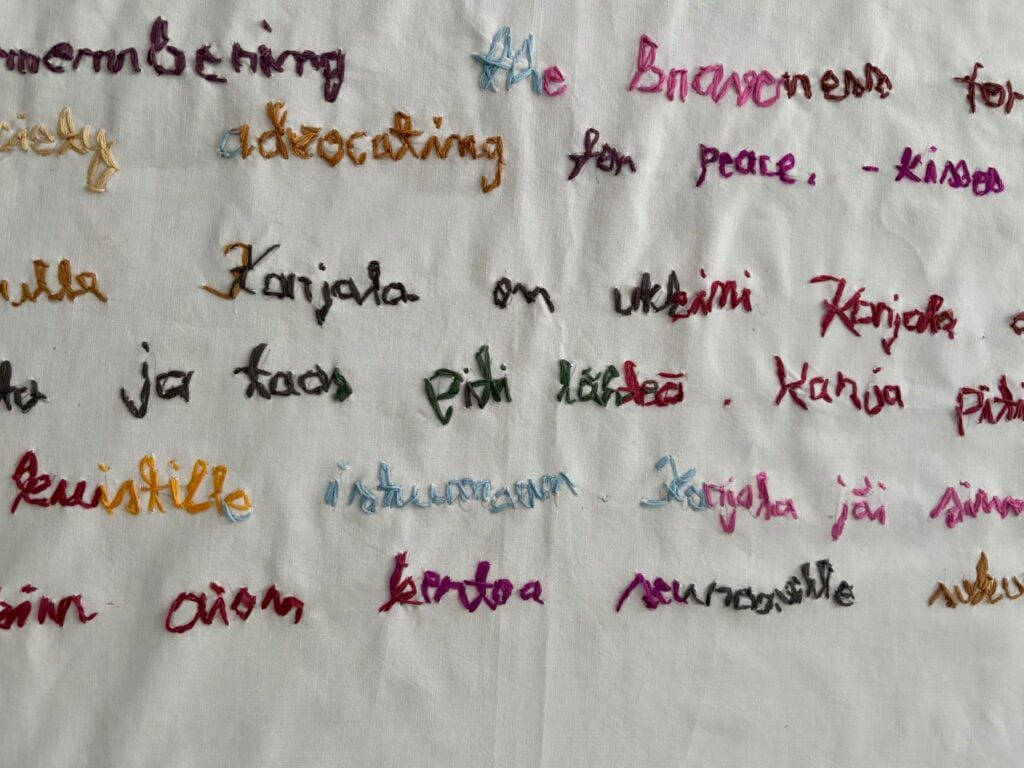 membering the braveness for
ciety advocating for peace. - kisses
ulla Karjala on ukkini Karjala
ta ja taas piti lähteä. Karja piti
kuistille istumaan. Karjala jäi sinn
aion kertoa seuraaville suku